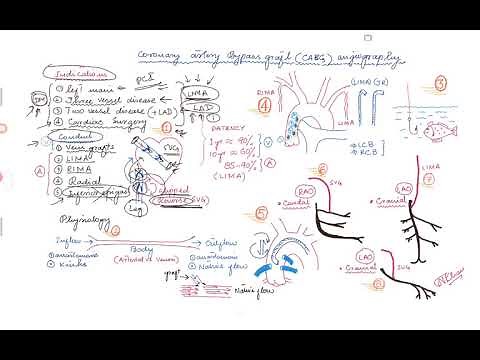 Coronary artery Bypass graft (CABG) angiography
Indications
PCI
① left main
② Three vessel disease
③ Two vessel disease (+LAD)
④ Cardiac Surgery
LMA
LAD
①
Conduit
① Vein grafts
② LIMA
③ RIMA
④ Radial
Ⓐ
②
SVG
Leg
Reverse SVG
PATENCY
1yr ≈ 90%
10yr ≈ 60%
Ⓥ
85-90%
(LIMA)
Ⓐ
RIMA
④
LIMA
(LIMA) (JR)
LCB
RCB
③
⑥
SVG
RAO
+ Caudal
LIMA
⑦
LAO
+ Cranial
Inflow
Outflow
Body
(Arterial or Venous)
① anastomosis
② Kinks
① anastomosis
② Native flow
graft
Native flow
⑤
LAO
+ Cranial
SVG
⑧